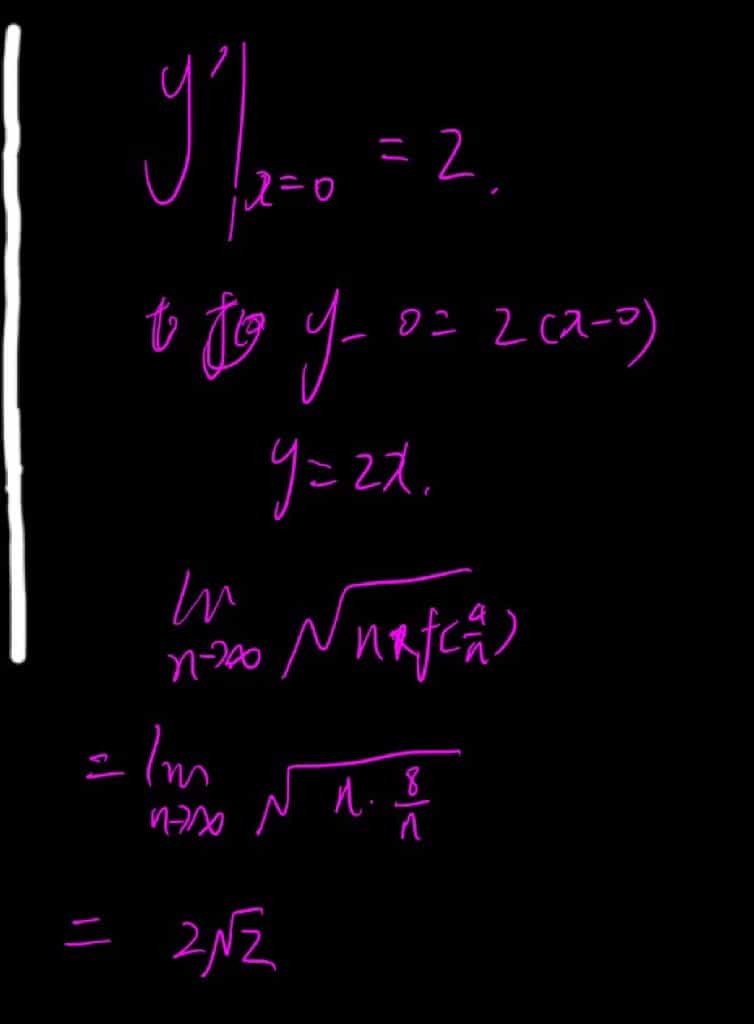 y'|x=0 = 2.
y - 0 = 2(x-0)
y = 2x.
lim n→∞ √n f(4/n)
= lim n→∞ √n · 8/n
= 2√2